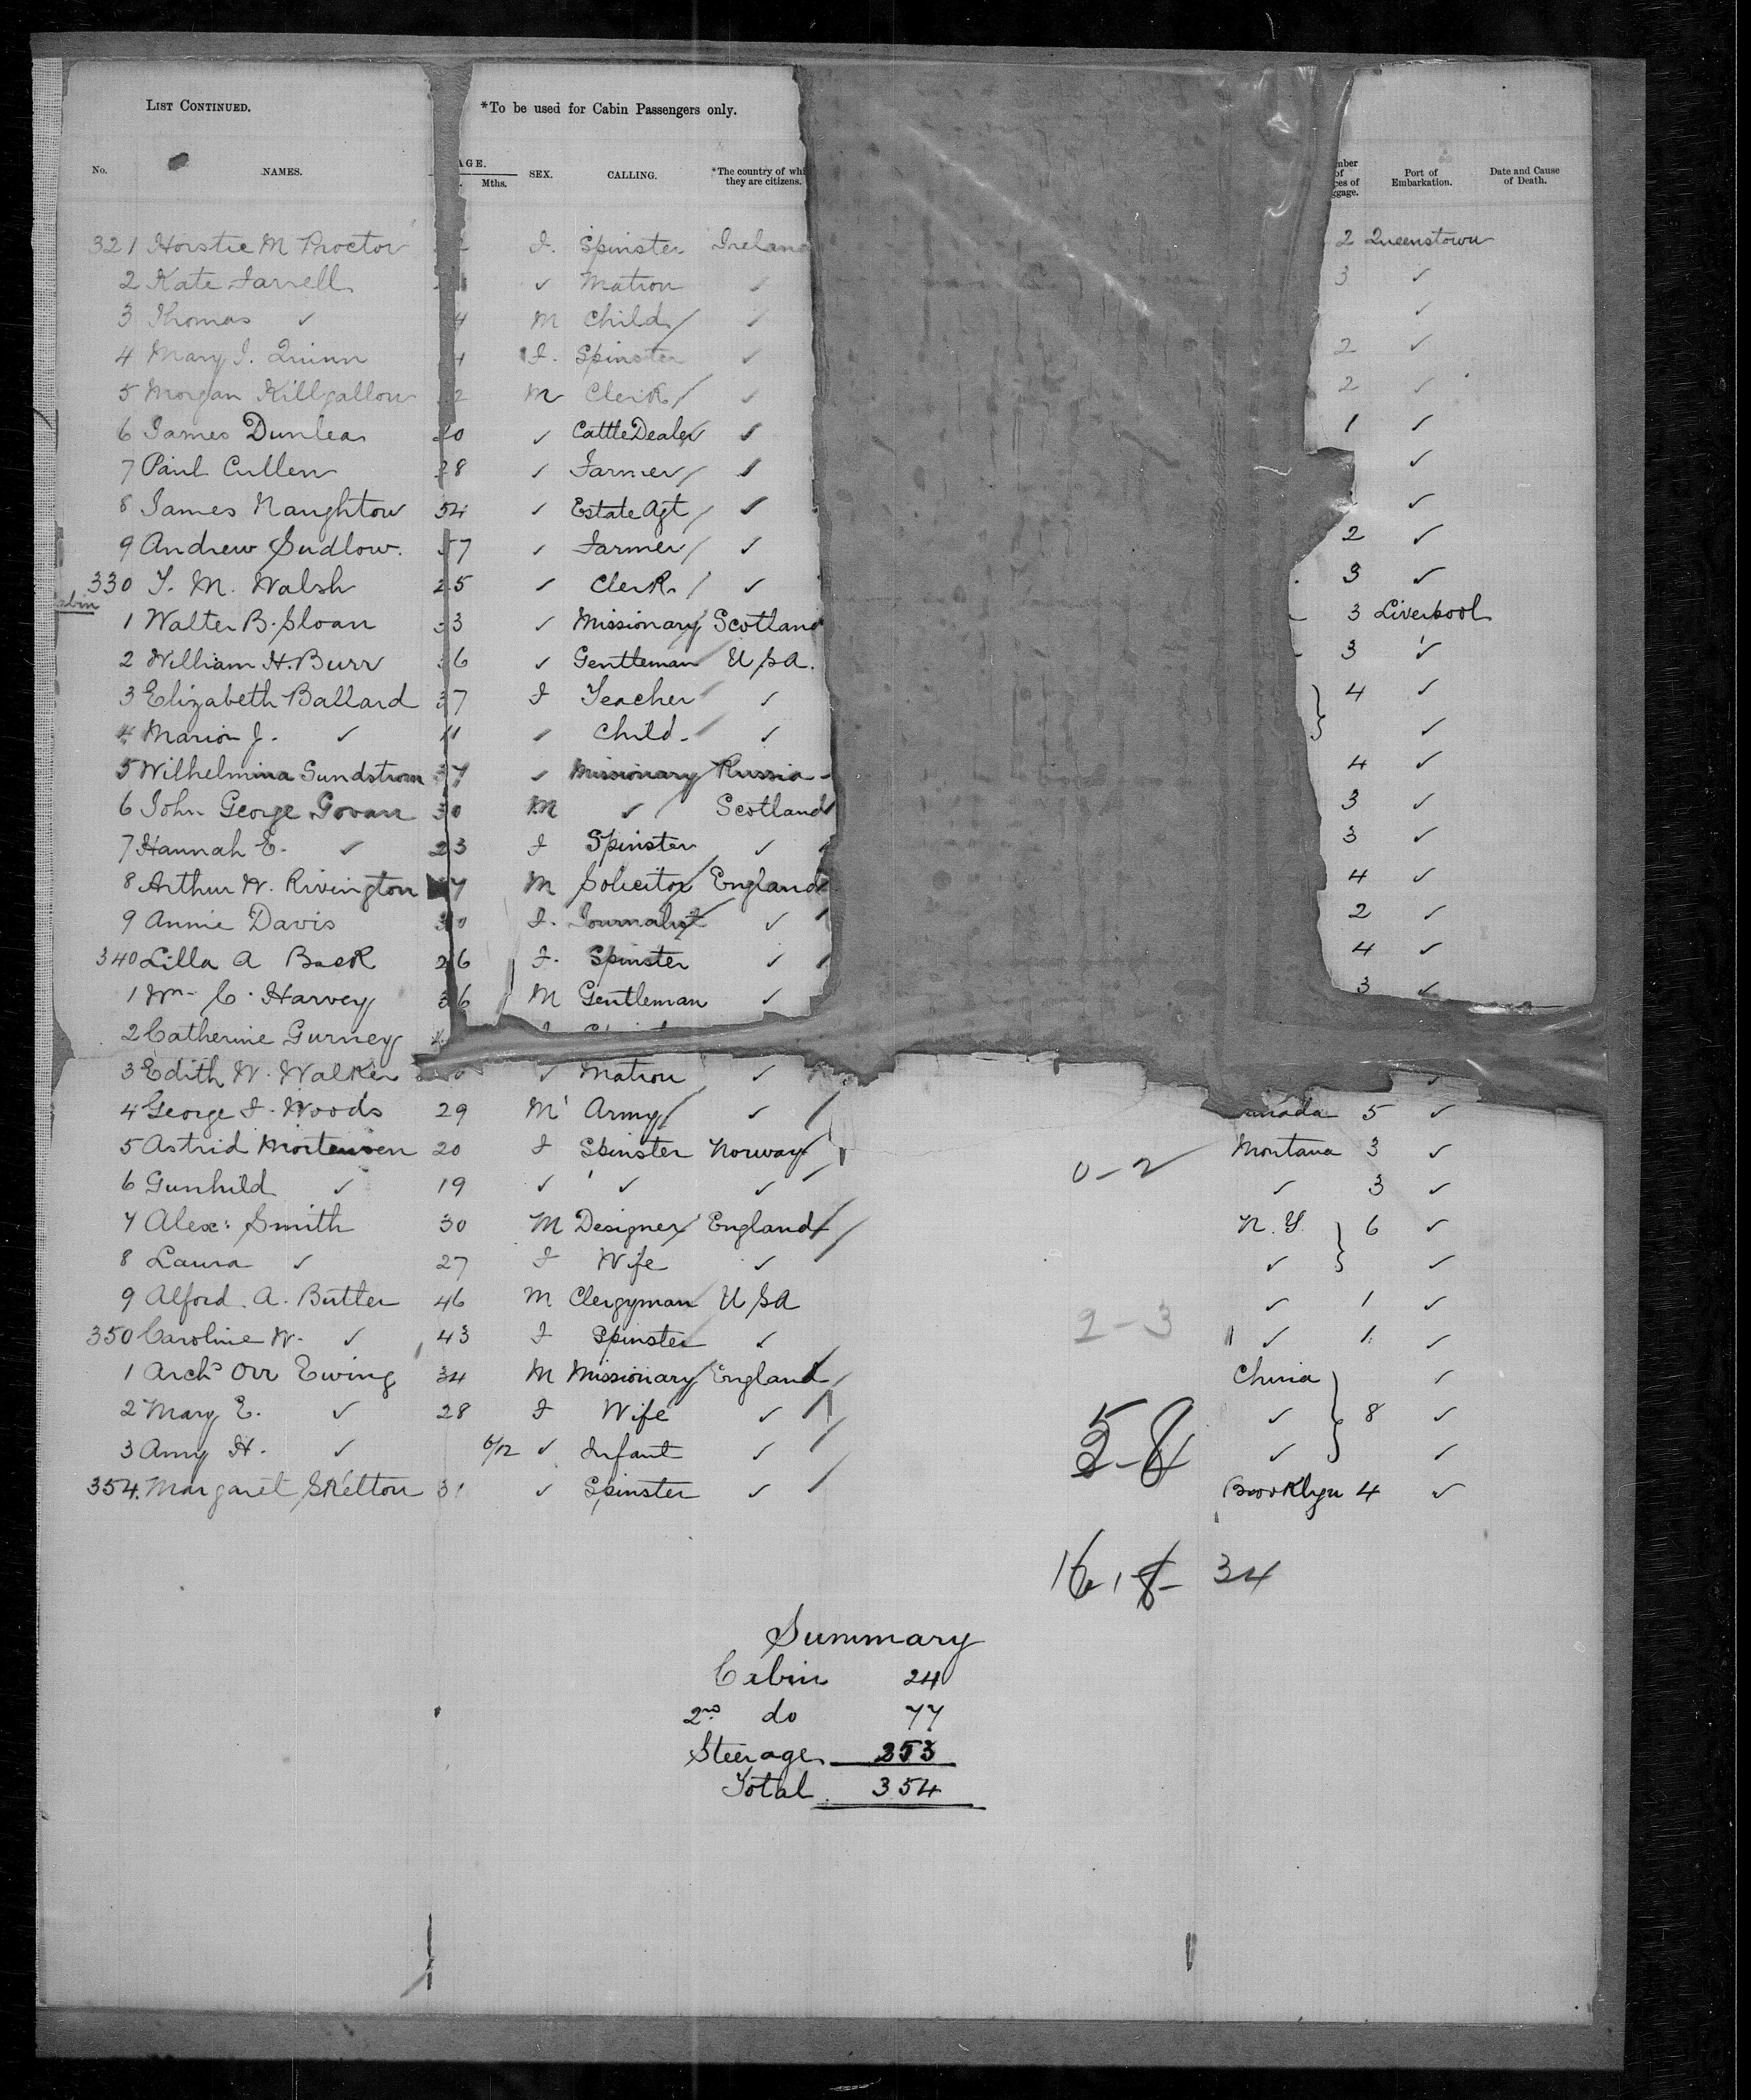 LIST CONTINUED. *To be used for Cabin Passengers only.
No. NAMES. AGE. Mths. SEX. CALLING. *The country of whi they are citizens. mber of ces of ggage. Port of Embarkation. Date and Cause of Death.
321 M Proctor F. Spinster Ireland 2 Queenstown
2 Kate Farrell ✓ Matron ✓ 3 ✓
3 Thomas ✓ 4 M Child ✓ ✓
4 Mary J. Quinn F. Spinster ✓ 2 ✓
5 Morgan Killgallon 2 M Clerk ✓ 2 ✓
6 James Dunlea 0 ✓ Cattle Dealer ✓ 1 ✓
7 Paul Cullen 8 ✓ Farmer ✓ ✓
8 James Naughton 54 ✓ Estate Agt ✓ ✓
9 Andrew Sudlow. 7 ✓ Farmer ✓ 2 ✓
330 T. M. Walsh 25 ✓ Clerk ✓ 3 ✓
abin
1 Walter B. Sloan 33 ✓ Missionary Scotland 3 Liverpool
2 William H. Burr 36 ✓ Gentleman USA. 3 ✓
3 Elizabeth Ballard 37 F Teacher ✓ 4 ✓
4 Marion J. ✓ 11 ✓ Child ✓ ✓
5 Wilhelmina Sundstrom 37 ✓ Missionary Russia 4 ✓
6 John George Govan 30 M ✓ Scotland 3 ✓
7 Hannah E. ✓ 23 F Spinster ✓ 3 ✓
8 Arthur W. Rivington 7 M Solicitor England 4 ✓
9 Annie Davis 30 F. Journalist ✓ 2 ✓
340 Lilla A Back 26 F. Spinster ✓ 4 ✓
1 Wm. C. Harvey 36 M Gentleman ✓ 3 ✓
2 Catherine Gurney 4
3 Edith W. Walker ✓ Matron ✓ ✓
4 George F. Woods 29 M Army ✓ anada 5 ✓
5 Astrid Mortensen 20 F Spinster Norway 0-2 Montana 3 ✓
6 Gunhild ✓ 19 ✓ ✓ ✓ ✓ 3 ✓
7 Alex: Smith 30 M Designer England N.Y. 6 ✓
8 Laura ✓ 27 F Wife ✓ ✓ ✓
9 Alford. A. Butler 46 M Clergyman USA ✓ 1 ✓
350 Caroline W. ✓ 43 F Spinster ✓ 2-3 ✓ 1 ✓
1 Archd Orr Ewing 34 M Missionary England China ✓
2 Mary E. ✓ 28 F Wife ✓ ✓ 8 ✓
3 Amy H. ✓ 6/12 ✓ Infant ✓ ✓ ✓
354. Margaret Skelton 31 ✓ Spinster ✓ Brooklyn 4 ✓
34
Summary
Cabin 24
2nd do 77
Steerage 253
Total 354